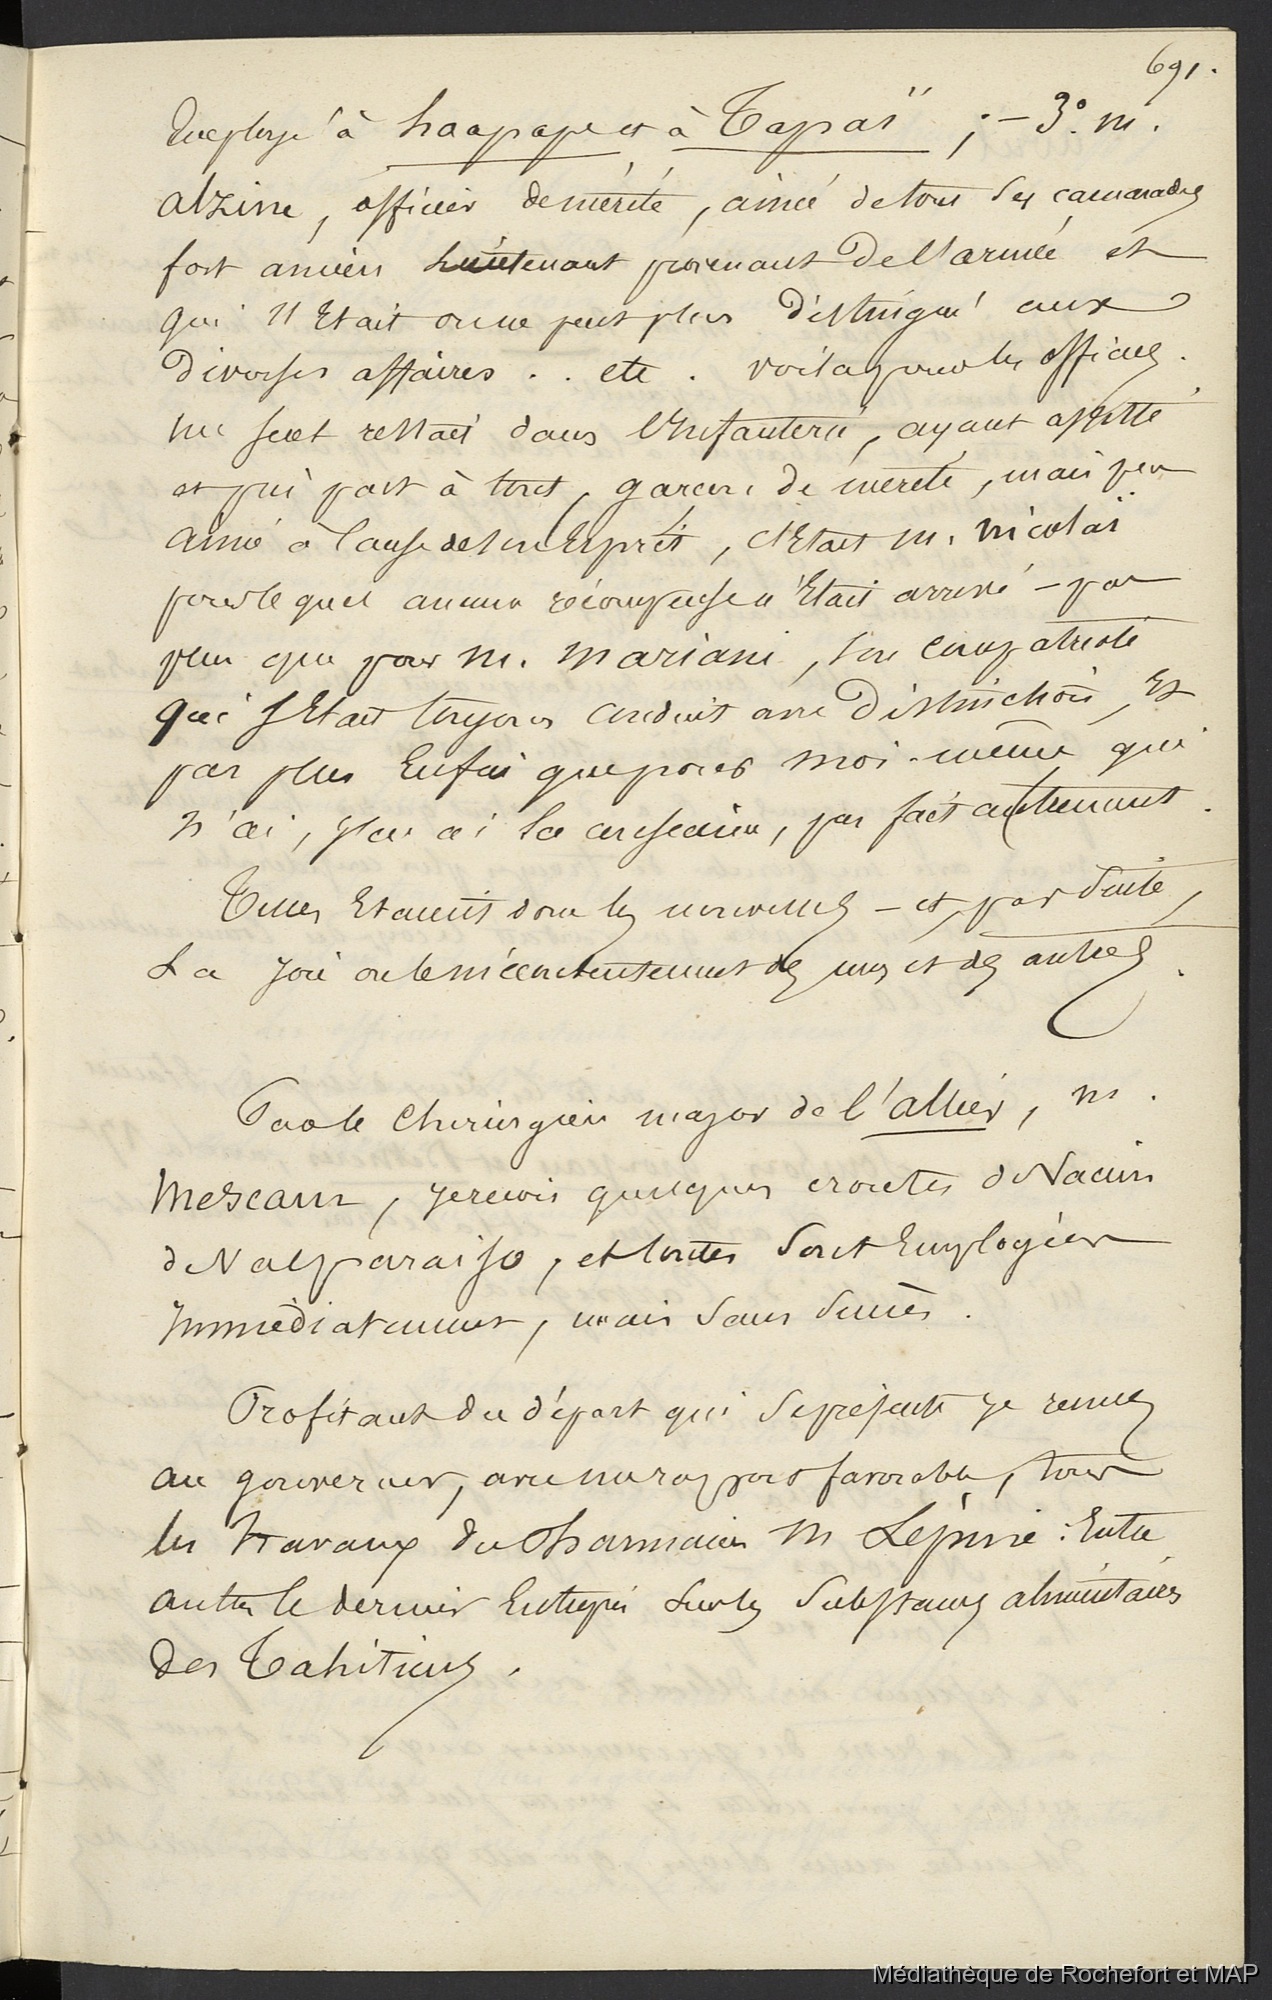 691.
à haapape et à Tapaï ; – 3º. m.
alzine, officier de mérite, aimé de tous ses camarades
fort ancien lieutenant provenant de l'armée et
qui s'Etait on ne peut plus distingué aux
diverses affaires . . etc . voilà pour les officiers.
un seul restait dans l'Infanterie, ayant assisté
et pris part à tout, garcon de mérite, mais peu
aimé à cause de son Esprit, c'Etait m. Nicolaï
pour lequel aucune récompense n'Etait arrivé – pas
plus que pour m. Mariani, son compatriote
qui s'Etait toujours conduit avec distinction, Et
pas plus Enfin que pour moi-même qui
n'ai, j'en ai la conscience, pas fait autrement.
Telles Etaient donc les nouvelles – et, par suite,
La joie ou le mécontentement des uns et des autres.
Par le chirurgien major de l'allier, m.
Mescam, je recois quelques croutes de Vaccin
de Valparaiso, et toutes sont Employées
Immédiatement, mais sans succès.
Profitant du départ qui se présente je remets
au gouverneur, avec un rapport favorable, tous
les travaux du Pharmacien M Lépine : Entre
autres le dernier Entrepris sur les substances alimentaires
des Tahitiens.
Médiathèque de Rochefort et MAP